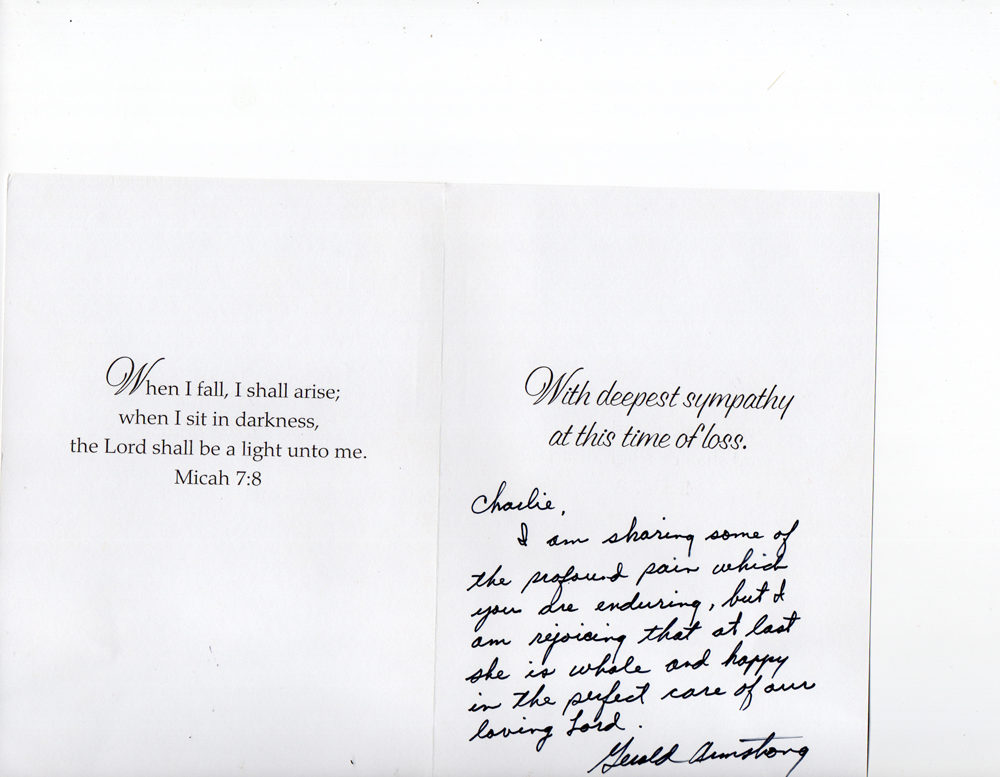 When I fall, I shall arise;
when I sit in darkness,
the Lord shall be a light unto me.
Micah 7:8
With deepest sympathy
at this time of loss.
Charlie,
I am sharing some of
the profound pain which
you are enduring, but I
am rejoicing that at last
she is whole and happy
in the perfect care of our
loving Lord.
Gerald Armstrong